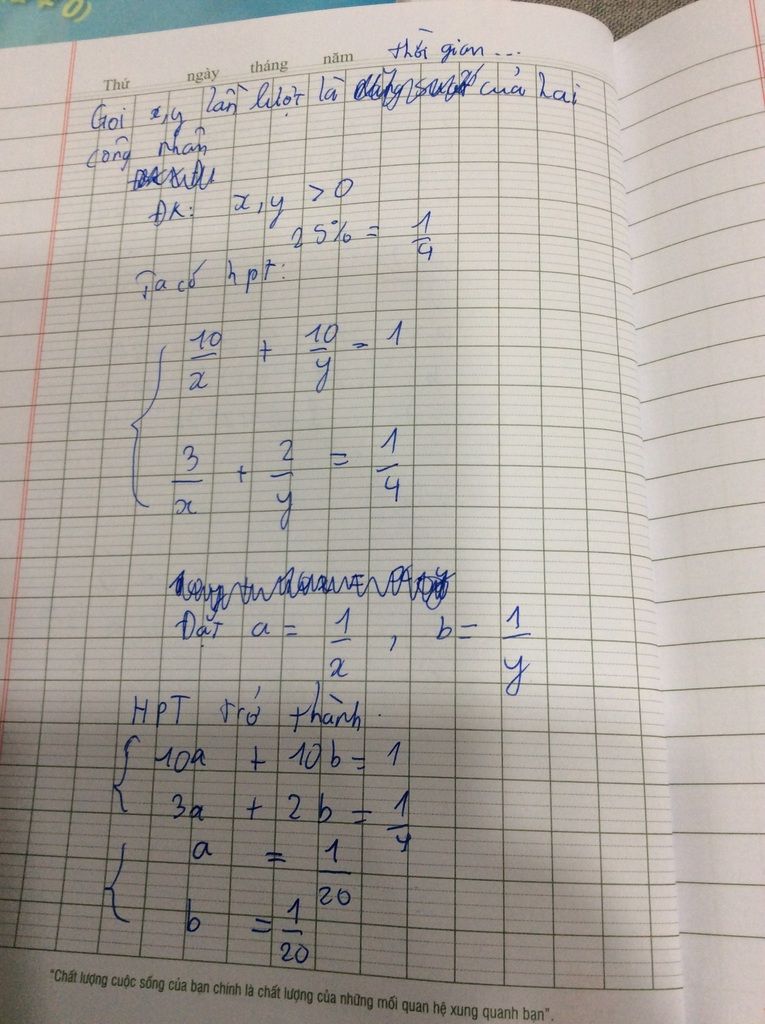 + 0)
Thứ ngày tháng năm
thời gian...
Gọi x,y lần lượt là của hai
công nhân
ĐK: x,y > 0
25% = 1/4
Ta có hpt:
10/x + 10/y = 1
3/x + 2/y = 1/4
Đặt a = 1/x , b = 1/y
HPT trở thành.
10a + 10b = 1
3a + 2b = 1/4
a = 1/20
b = 1/20
"Chất lượng cuộc sống của bạn chính là chất lượng của những mối quan hệ xung quanh bạn".